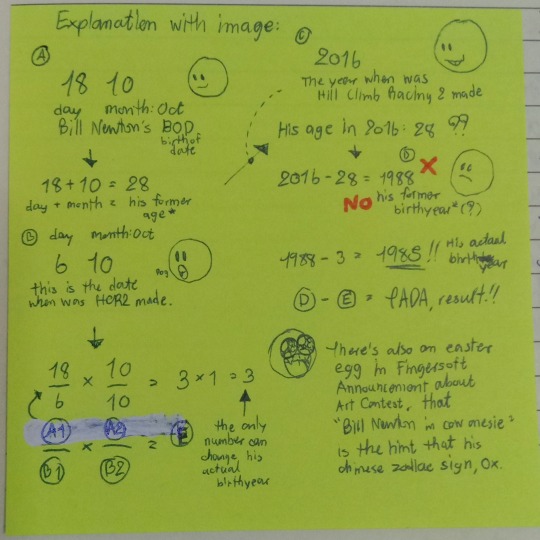 Explanation with image:
A
18 10
day month: Oct
Bill Newton's BOD
birth of
date
18 + 10 = 28
day + month = his former
age*
B day month: Oct
6 10
this is the date
when was HCR2 made.
18/6 × 10/10 = 3 × 1 = 3
A1/B1 × A2/B2 = E
the only
number can
change his
actual
birthyear
C
2016
The year when was
Hill Climb Racing 2 made
His age in 2016: 28 ??
D
2016 - 28 = 1988 X
NO his former
birthyear* (?)
1988 - 3 = 1985!! His actual
birthyear
D - E = TADA, result!!
There's also an easter
egg in Fingersoft
Announcement about
Art Contest, that
"Bill Newton in cow onesie"
is the hint that his
chinese zodiac sign, Ox.